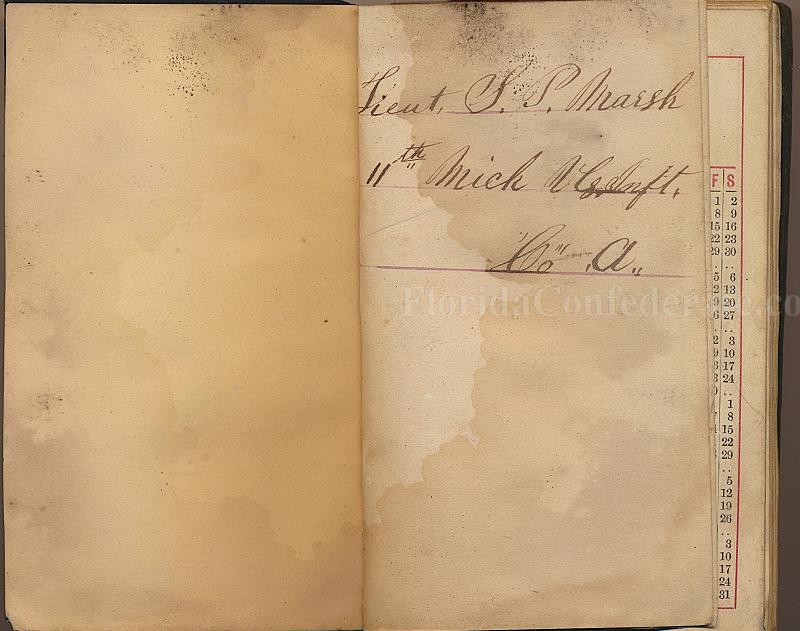 Lieut. S. P. Marsh
11th Mich V Inft.
"Co" "A"
FloridaConfederate.co
F S
1 2
8 9
15 16
22 23
29 30
. ..
5 6
2 13
9 20
6 27
. ..
2 3
9 10
6 17
3 24
..
1
8
15
22
29
..
5
12
19
26
..
3
10
17
24
31